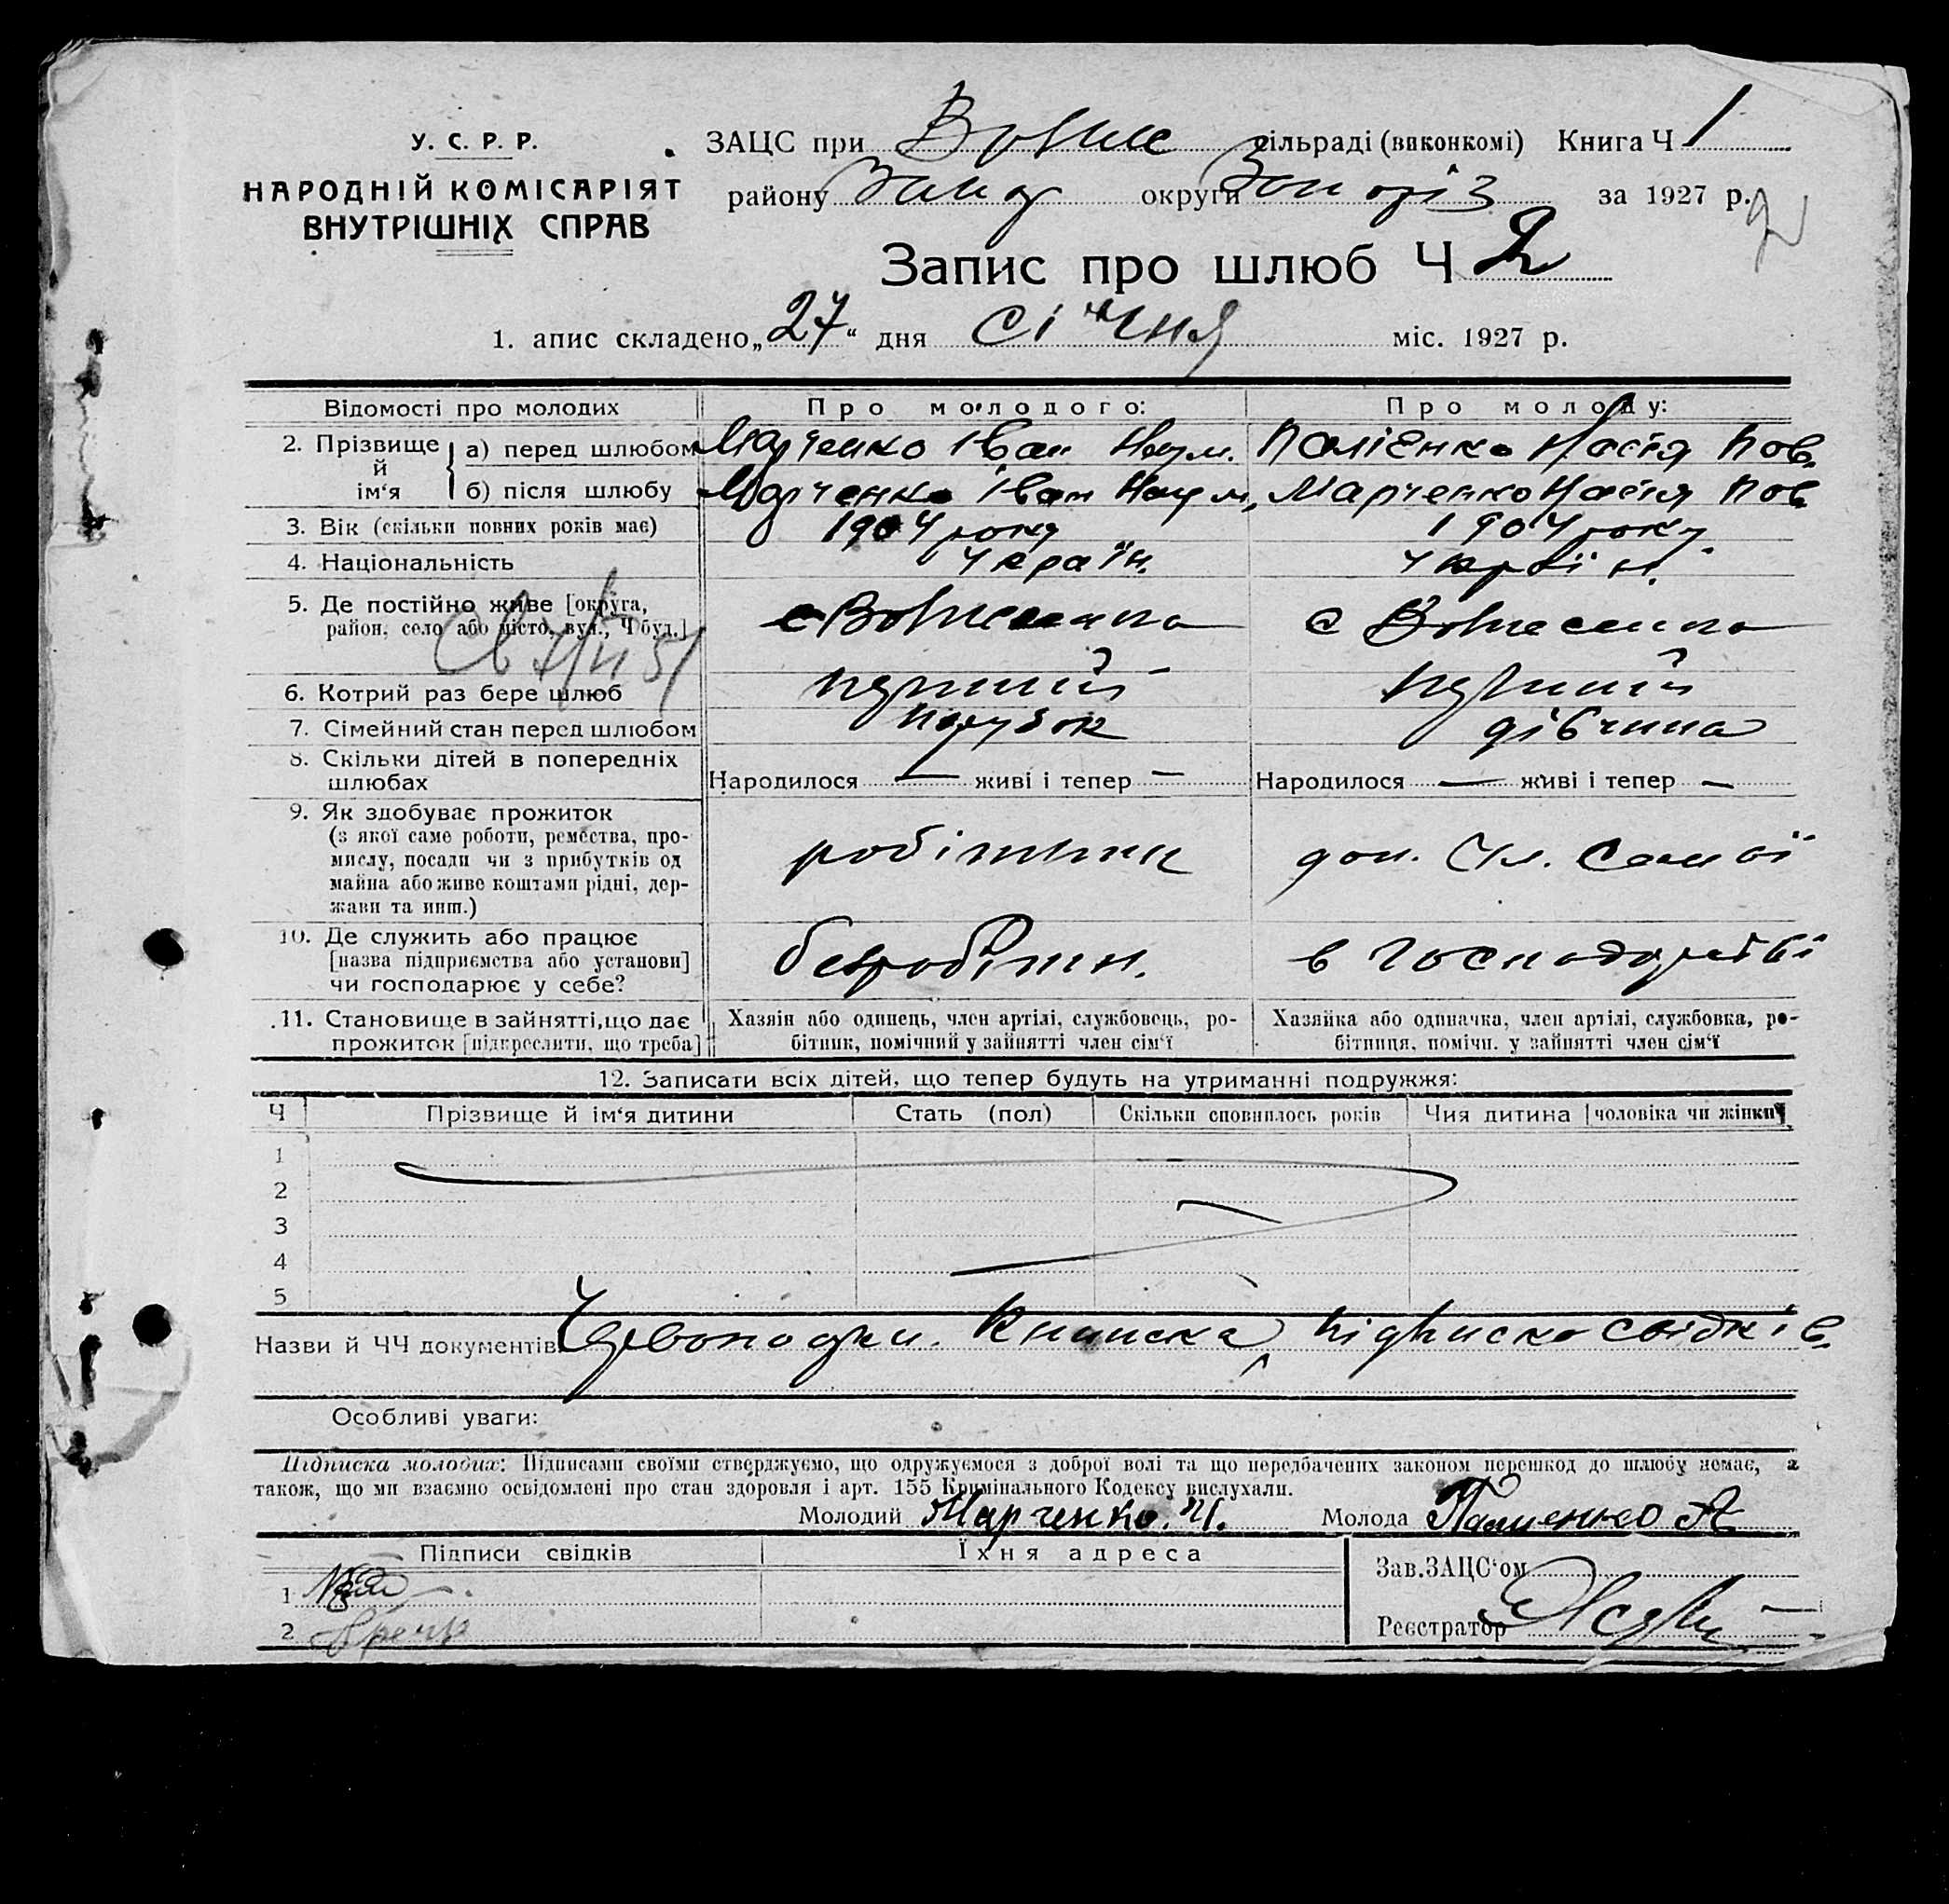 У. С. Р. Р.
НАРОДНІЙ КОМІСАРІЯТ
ВНУТРІШНІХ СПРАВ
ЗАЦС при Вознес сільраді (виконкомі) Книга Ч 1
району Запор округи Запоріз за 1927 р.
2
Запис про шлюб Ч 2
1. апис складено „27“ дня січня міс. 1927 р.
Відомості про молодих Про молодого: Про молоду:
2. Прізвище й ім‘я а) перед шлюбом Марченко Іван Наум. Палієнко Настя Пов.
б) після шлюбу Марченко Іван Наум. Марченко Настя Пов.
3. Вік (скільки повних років має) 1904 року 1904 року
4. Національність Україн. Україн.
5. Де постійно живе [округа, район, село або місто, вул., Ч буд.] с Вознесенка с Вознесенка
6. Котрий раз бере шлюб перший перший
7. Сімейний стан перед шлюбом парубок дівчина
8. Скільки дітей в попередніх шлюбах Народилося — живі і тепер — Народилося — живі і тепер —
9. Як здобуває прожиток
(з якої саме роботи, ремества, про-
мислу, посади чи з прибутків од
майна або живе коштами рідні, дер-
жави та инш.)
робітник доп. Чл. Семьї
10. Де служить або працює
[назва підприємства або установи]
чи господарює у себе?
безробітн. в господарстві
11. Становище в зайнятті, що дає
прожиток [підкреслити, що треба]
Хазяїн або одинець, член артілі, службовець, ро-
бітник, помічний у зайнятті член сім‘ї
Хазяйка або одиначка, член артілі, службовка, ро-
бітниця, помічн. у зайнятті член сім‘ї
12. Записати всіх дітей, що тепер будуть на утриманні подружжя:
Ч Прізвище й ім‘я дитини Стать (пол) Скільки сповнилось років Чия дитина [чоловіка чи жінки]
1
2
3
4
5
Назви й ЧЧ документів: Книжка, підписка свідків.
Особливі уваги:
Підписка молодих: Підписами своїми стверджуємо, що одружуємося з доброї волі та що передбачених законом перешкод до шлюбу немає, а
також, що ми взаємно освідомлені про стан здоровля і арт. 155 Кримінального Кодексу вислухали.
Молодий Марченко. И. Молода Палиенко А
Підписи свідків Їхня адреса
Зав. ЗАЦС‘ом
1
2
Реєстратор